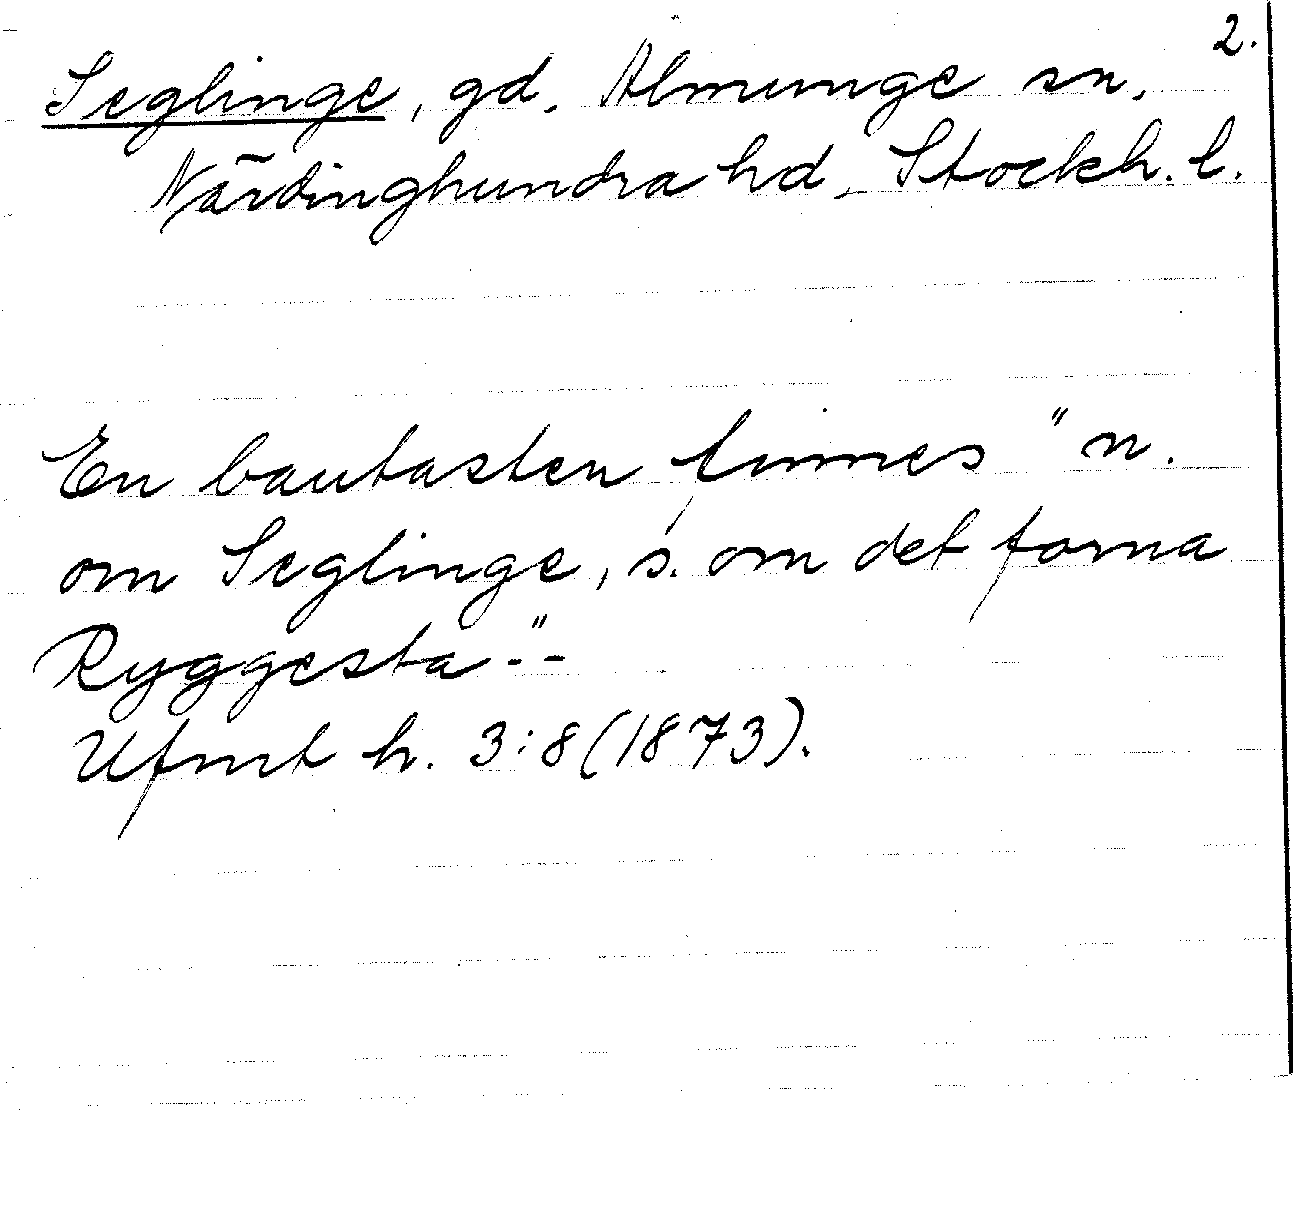 2.
Seglinge, gd. Almunge sn.
Närdinghundra hd, Stockh. l.
En bautasten finnes "n.
om Seglinge, s. om det forna
Ryggesta --"
Ufmt h. 3:8 (1873).